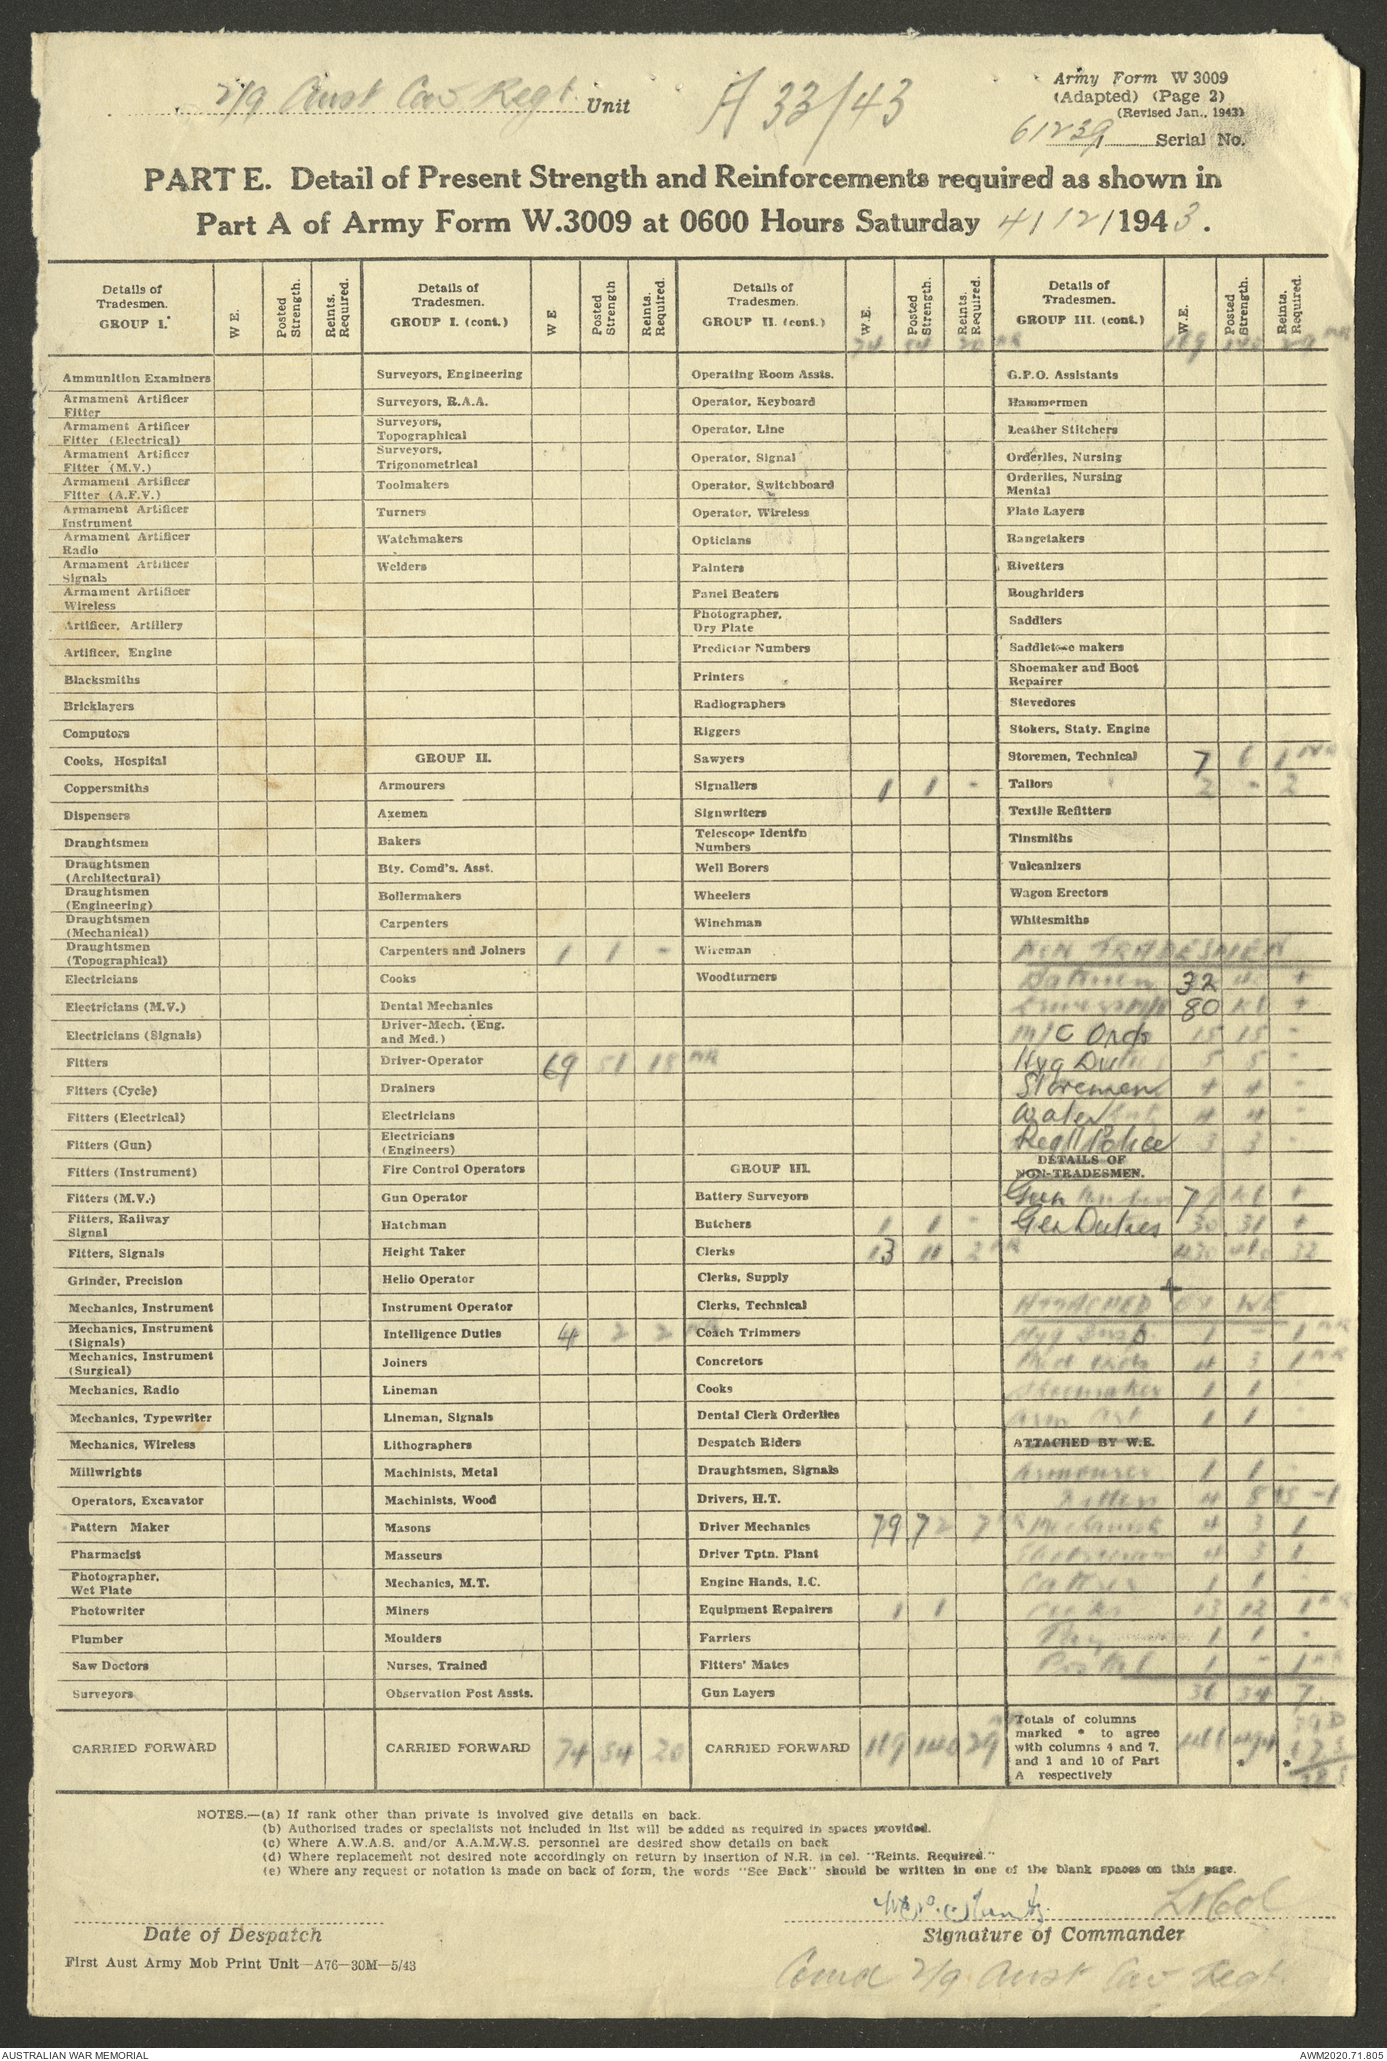 2/9 Aust Cav Regt. Unit
A 33/43
Army Form W 3009
(Adapted) (Page 2)
(Revised Jan., 1943)
61239 Serial No.
PART E. Detail of Present Strength and Reinforcements required as shown in
Part A of Army Form W.3009 at 0600 Hours Saturday 4/12/1943.
Details of Tradesmen. GROUP I.
W E.
Posted Strength.
Reints. Required.
Ammunition Examiners
Armament Artificer Fitter
Armament Artificer Fitter (Electrical)
Armament Artificer Fitter (M.V.)
Armament Artificer Fitter (A.F.V.)
Armament Artificer Instrument
Armament Artificer Radio
Armament Artificer Signals
Armament Artificer Wireless
Artificer, Artillery
Artificer, Engine
Blacksmiths
Bricklayers
Computors
Cooks, Hospital
Coppersmiths
Dispensers
Draughtsmen
Draughtsmen (Architectural)
Draughtsmen (Engineering)
Draughtsmen (Mechanical)
Draughtsmen (Topographical)
Electricians
Electricians (M.V.)
Electricians (Signals)
Fitters
Fitters (Cycle)
Fitters (Electrical)
Fitters (Gun)
Fitters (Instrument)
Fitters (M.V.)
Fitters, Railway Signal
Fitters, Signals
Grinder, Precision
Mechanics, Instrument
Mechanics, Instrument (Signals)
Mechanics, Instrument (Surgical)
Mechanics, Radio
Mechanics, Typewriter
Mechanics, Wireless
Millwrights
Operators, Excavator
Pattern Maker
Pharmacist
Photographer, Wet Plate
Photowriter
Plumber
Saw Doctors
Surveyors
CARRIED FORWARD
Details of Tradesmen. GROUP I. (cont.)
W E
Posted Strength
Reints. Required.
Surveyors, Engineering
Surveyors, R.A.A.
Surveyors, Topographical
Surveyors, Trigonometrical
Toolmakers
Turners
Watchmakers
Welders
GROUP II.
Armourers
Axemen
Bakers
Bty. Comd's. Asst.
Boilermakers
Carpenters
Carpenters and Joiners 1 1 -
Cooks
Dental Mechanics
Driver-Mech. (Eng. and Med.)
Driver-Operator 69 51 18 NR
Drainers
Electricians
Electricians (Engineers)
Fire Control Operators
Gun Operator
Hatchman
Height Taker
Helio Operator
Instrument Operator
Intelligence Duties 4 2 2 NR
Joiners
Lineman
Lineman, Signals
Lithographers
Machinists, Metal
Machinists, Wood
Masons
Masseurs
Mechanics, M.T.
Miners
Moulders
Nurses, Trained
Observation Post Assts.
CARRIED FORWARD 74 54 20
Details of Tradesmen. GROUP II. (cont.)
W.E.
Posted Strength.
Reints. Required.
74 54 20 NR
Operating Room Assts.
Operator, Keyboard
Operator, Line
Operator, Signal
Operator, Switchboard
Operator, Wireless
Opticians
Painters
Panel Beaters
Photographer, Dry Plate
Predictor Numbers
Printers
Radiographers
Riggers
Sawyers
Signallers 1 1 -
Signwriters
Telescope Identfn Numbers
Well Borers
Wheelers
Winchman
Wireman
Woodturners
GROUP III.
Battery Surveyors
Butchers 1 1 -
Clerks 13 11 2 NR
Clerks, Supply
Clerks, Technical
Coach Trimmers
Concretors
Cooks
Dental Clerk Orderlies
Despatch Riders
Draughtsmen, Signals
Drivers, H.T.
Driver Mechanics 79 72 7 NR
Driver Tptn. Plant
Engine Hands, I.C.
Equipment Repairers 1 1
Farriers
Fitters' Mates
Gun Layers
CARRIED FORWARD 169 140 29
Details of Tradesmen. GROUP III. (cont.)
W.E.
Posted Strength.
Reints. Required.
169 140 29 NR
G.P.O. Assistants
Hammermen
Leather Stitchers
Orderlies, Nursing
Orderlies, Nursing Mental
Plate Layers
Rangetakers
Rivetters
Roughriders
Saddlers
Saddletree makers
Shoemaker and Boot Repairer
Stevedores
Stokers, Staty. Engine
Storemen, Technical 7 6 1 NR
Tailors 2 - 2
Textile Refitters
Tinsmiths
Vulcanizers
Wagon Erectors
Whitesmiths
NON TRADESMEN
Batmen 32 +
80 +
M/C Ords 15 15 -
Hyg Duties 5 5 -
Storemen 4 4 -
Water 4 4 -
Regtl Police 3 3 -
DETAILS OF NON-TRADESMEN.
Gun +
Gen Duties 30 31 +
ATTACHED BY WE
Hyg 1 - 1 NR
4 3 1 NR
Shoemaker 1 1 -
1 1 -
ATTACHED BY W.E.
Armourer 1 1 -
Fitters 4
Mechanics 4 3 1
Electricians 4 3 1
1 1 -
Cooks 13 12 1 NR
1 1 -
Postal 1 - 1 NR
34 7
Totals of columns marked * to agree with columns 4 and 7, and 1 and 10 of Part A respectively
NOTES.—(a) If rank other than private is involved give details on back.
(b) Authorised trades or specialists not included in list will be added as required in spaces provided.
(c) Where A.W.A.S. and/or A.A.M.W.S. personnel are desired show details on back
(d) Where replacement not desired note accordingly on return by insertion of N.R. in col. "Reints. Required."
(e) Where any request or notation is made on back of form, the words "See Back" should be written in one of the blank spaces on this page.
Lt Col
Date of Despatch
Signature of Commander
First Aust Army Mob Print Unit—A76—30M—5/43
Comd 2/9 Aust Cav Regt.
AUSTRALIAN WAR MEMORIAL
AWM2020.71.805